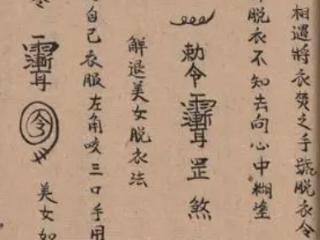 相遇將衣焚之手號脫衣令
脫衣不知去向心中糊塗
勅令罡煞
解退美女脫衣法
自己衣服左角咬三口手用
令
美女如